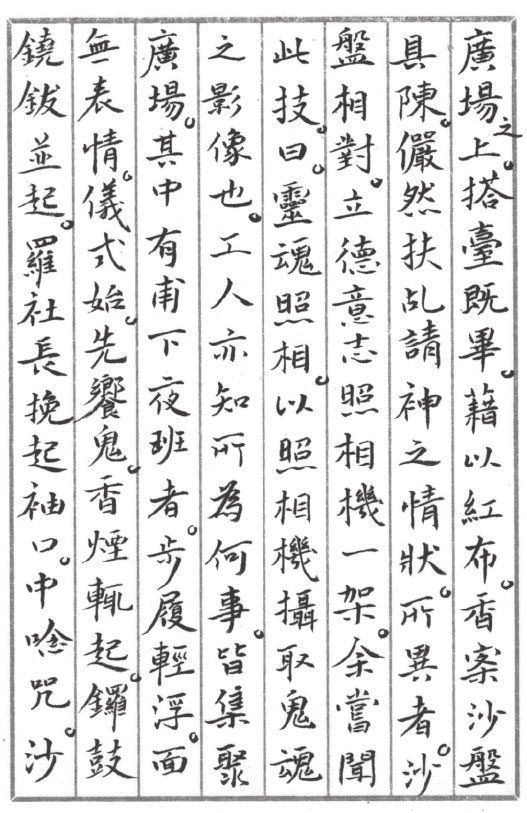 廣場之上。搭臺既畢。藉以紅布。香案沙盤
具陳。儼然扶乩請神之情狀。所異者。沙
盤相對。立德意志照相機一架。余嘗聞
此技。曰。靈魂照相。以照相機攝取鬼魂
之影像也。工人亦知所為何事。皆集聚
廣場。其中有甫下夜班者。步履輕浮。面
無表情。儀式始。先饗鬼。香煙輒起。鑼鼓
鐃鈸並起。羅社長挽起袖口。中唸咒。沙